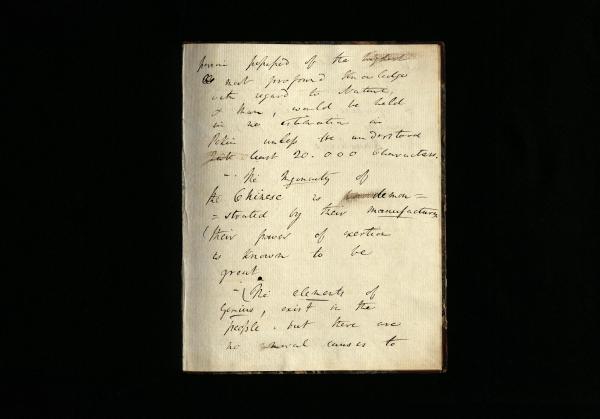 person possessed of the highest
& most profound knowledge
with regard to Nature,
& Man, would be held
in no estimation in
Pekin unless he understood
at least 20.000 characters.
– The Ingenuity of
the Chinese is demon=
=strated by their manufactures
(their power of exertion
is known to be
great.
– (The elements of
Genius, exist in the
people. but there are
no moral causes to